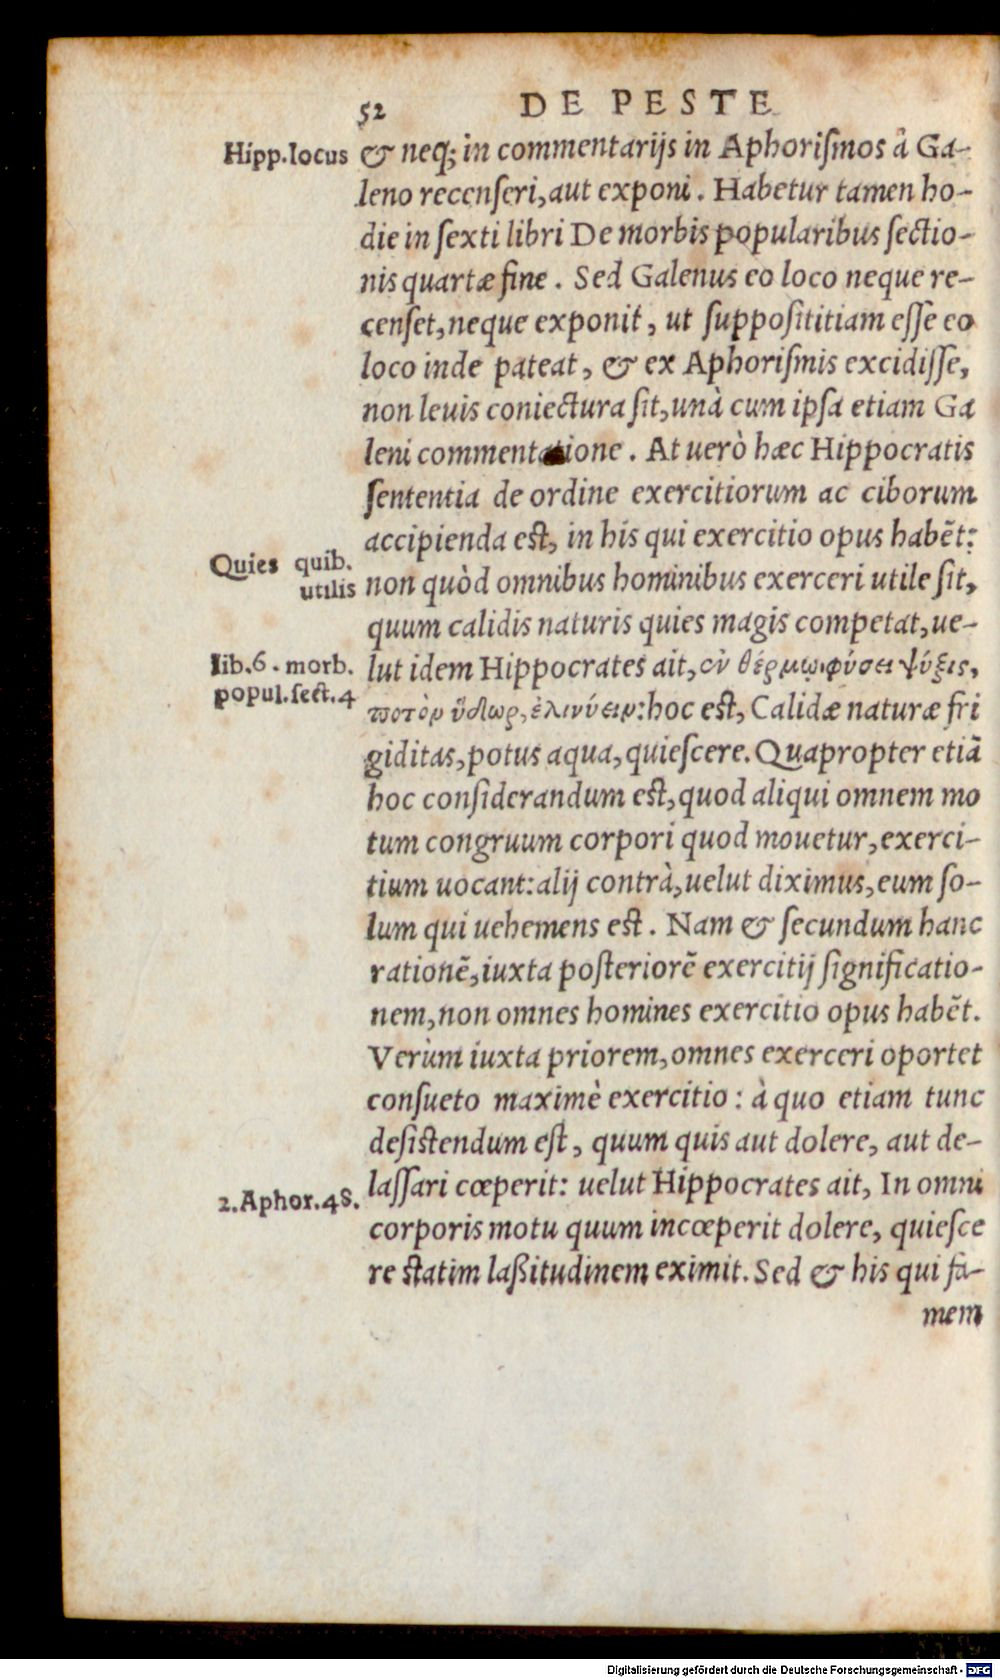 52 DE PESTE
Hipp.locus
& neq; in commentarijs in Aphoriſmos à Ga-
leno recenſeri, aut exponi. Habetur tamen ho-
die in ſexti libri De morbis popularibus ſectio-
nis quartæ fine. Sed Galenus eo loco neque re-
cenſet, neque exponit, ut ſuppoſititiam eſſe eo
loco inde pateat, & ex Aphoriſmis excidiſſe,
non leuis coniectura ſit, unà cum ipſa etiam Ga
leni commentatione. At uerò hæc Hippocratis
ſententia de ordine exercitiorum ac ciborum
accipienda est, in his qui exercitio opus habẽt:
Quies quib.
utilis
non quòd omnibus hominibus exerceri utile ſit,
quum calidis naturis quies magis competat, ue-
lib.6. morb.
popul.ſect.4
lut idem Hippocrates ait, ἐν θέρμῃ φύσει ψύξις,
ποτὸν ὕδωρ, ἐλινύειν: hoc est, Calidæ naturæ fri
giditas, potus aqua, quieſcere. Quapropter etiã
hoc conſiderandum est, quod aliqui omnem mo
tum congruum corpori quod mouetur, exerci-
tium uocant: alij contrà, uelut diximus, eum ſo-
lum qui uehemens est. Nam & ſecundum hanc
rationẽ, iuxta poſteriorẽ exercitij ſignificatio-
nem, non omnes homines exercitio opus habẽt.
Verùm iuxta priorem, omnes exerceri oportet
conſueto maximè exercitio: à quo etiam tunc
deſistendum eſt, quum quis aut dolere, aut de-
2.Aphor.48.
laſſari cœperit: uelut Hippocrates ait, In omni
corporis motu quum incœperit dolere, quieſce
re statim laßitudinem eximit. Sed & his qui fa-
mem
Digitalisierung gefördert durch die Deutsche Forschungsgemeinschaft - DFG